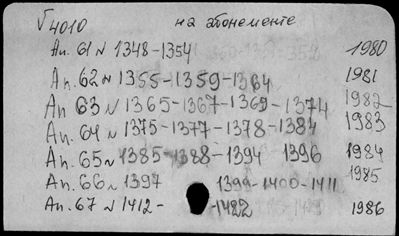 √4010 на абонементе
Ап. 61 N 1348-1354 1980
Ап. 62 N 1355-1359-1364 1981
Ап 63 N 1365-1367-1369-1374 1982
Ап. 64 N 1375-1377-1378-1384 1983
Ап. 65 N 1385-1388-1394 1396 1984
Ап. 66 N 1397 1399-1400-1411 1985
Ап. 67 N 1412- -1422 1986